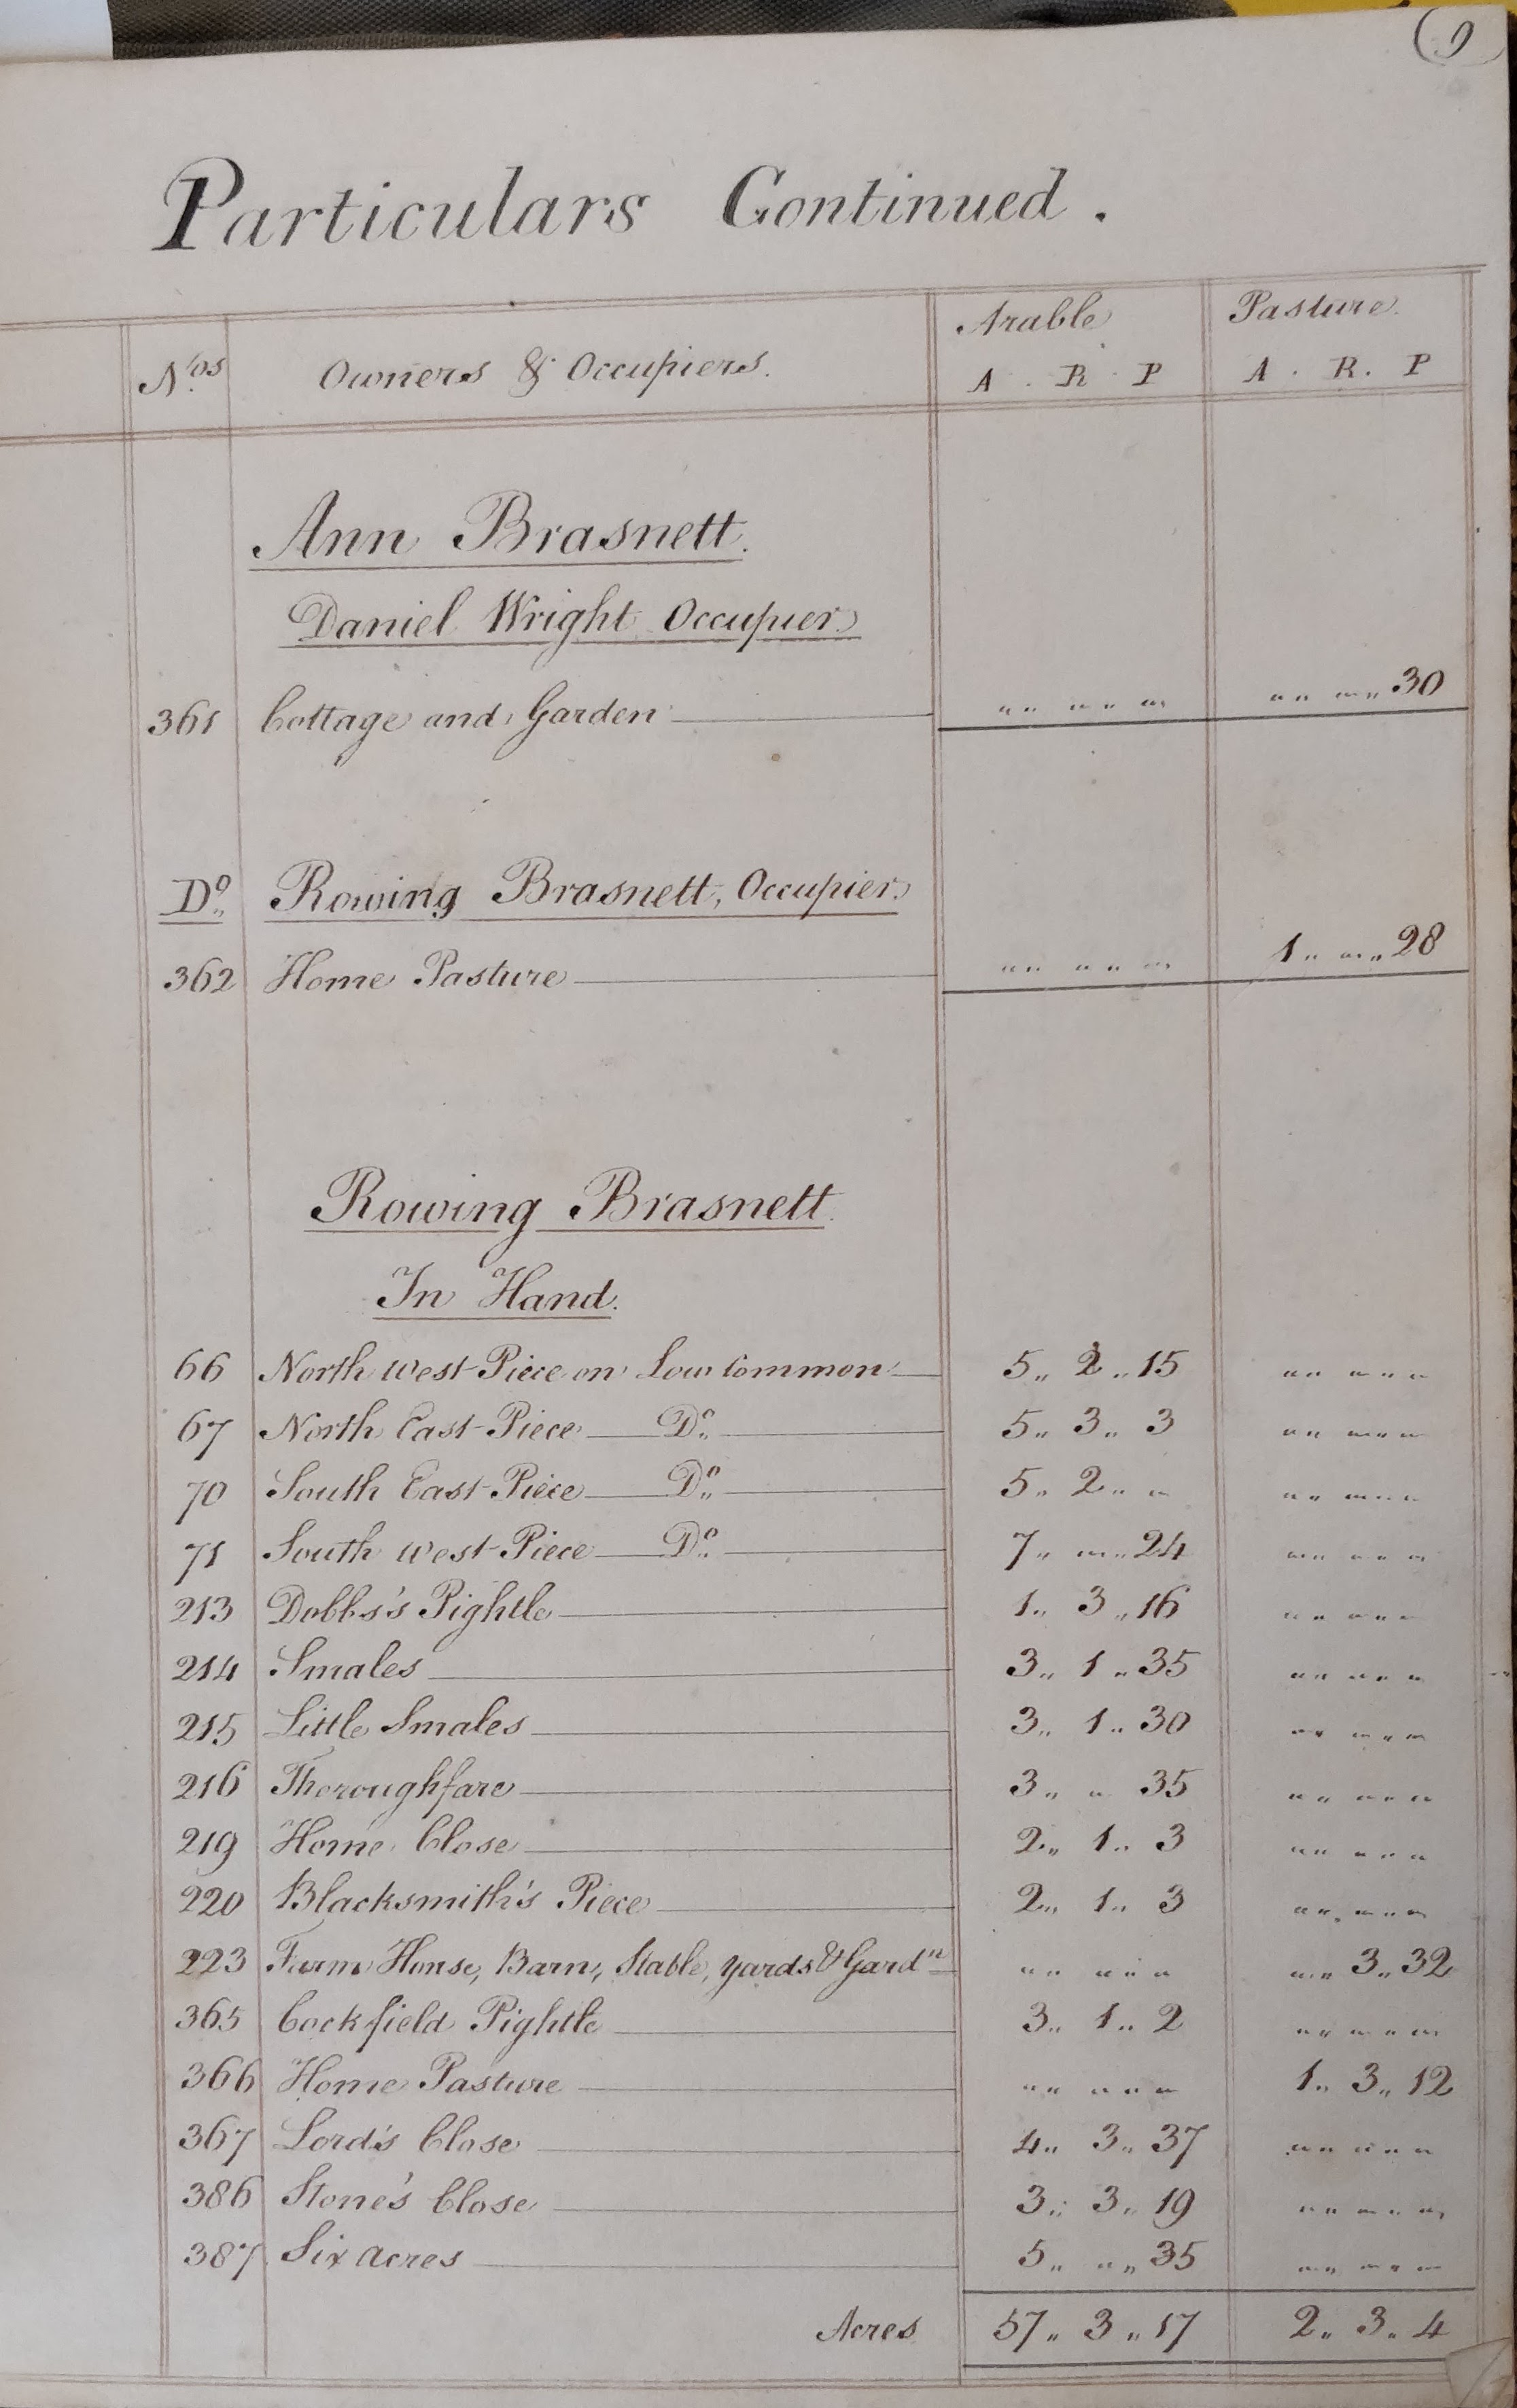 9
Particulars Continued.
Arable Pasture
Nos. Owners & Occupiers. A . R . P A . R . P
Ann Brasnett.
Daniel Wright Occupier
361 Cottage and Garden „ „ „ „ „ 30
Do. Rowing Brasnett, Occupier.
362 Home Pasture „ „ „ 1 „ „ 28
Rowing Brasnett.
In Hand.
66 North West Piece on Low Common 5 „ 2 „ 15 „ „ „
67 North East Piece Do. 5 „ 3 „ 3 „ „ „
70 South East Piece Do. 5 „ 2 „ „ „ „ „
71 South West Piece Do. 7 „ „ 24 „ „ „
213 Dobbs's Pightle 1 „ 3 „ 16 „ „ „
214 Smales 3 „ 1 „ 35 „ „ „
215 Little Smales 3 „ 1 „ 30 „ „ „
216 Thoroughfare 3 „ „ 35 „ „ „
219 Home Close 2 „ 1 „ 3 „ „ „
220 Blacksmith's Piece 2 „ 1 „ 3 „ „ „
223 Farm House, Barn, Stable, yards & Gardn „ „ „ „ 3 „ 32
365 Cockfield Pightle 3 „ 1 „ 2 „ „ „
366 Home Pasture „ „ „ 1 „ 3 „ 12
367 Lord's Close 4 „ 3 „ 37 „ „ „
386 Stone's Close 3 „ 3 „ 19 „ „ „
387 Six acres 5 „ „ 35 „ „ „
Acres 57 „ 3 „ 17 2 „ 3 „ 4